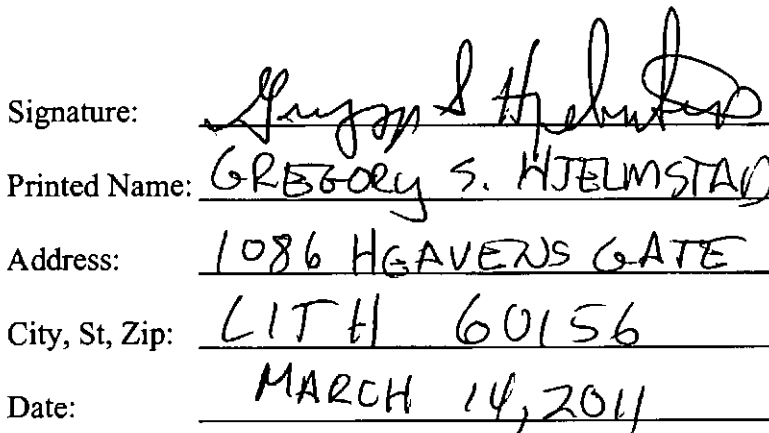 Signature: Gregory S Hjelmstad
Printed Name: GREGORY S. HJELMSTAD
Address: 1086 HEAVENS GATE
City, St, Zip: LITH 60156
Date: MARCH 14, 2011